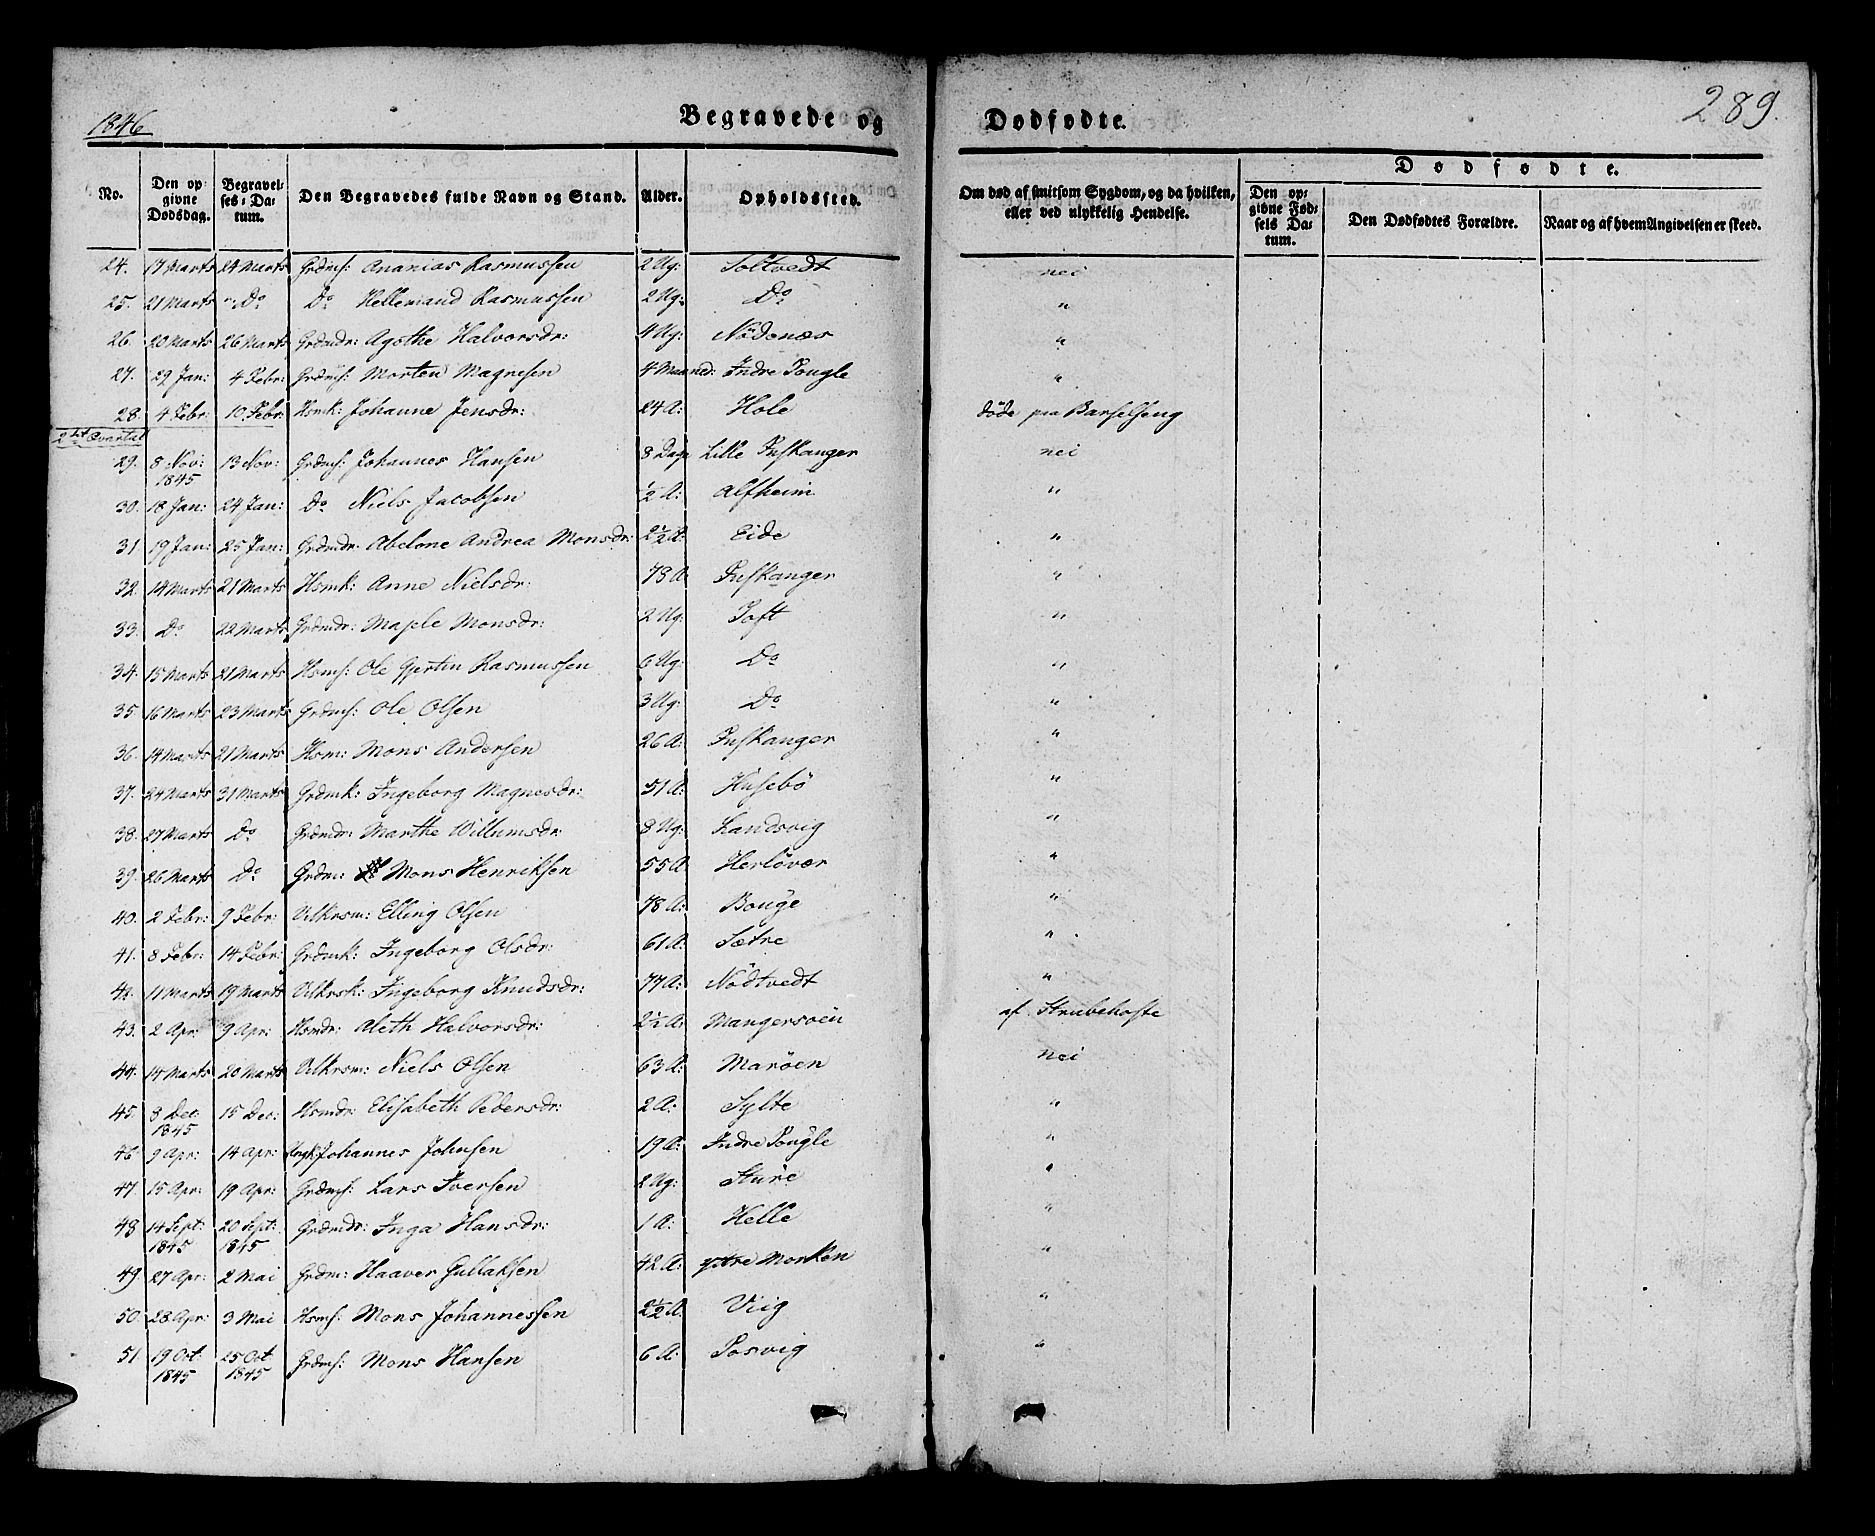 1846
Begravede og
Dødfødte.
289.
No.
Den opgivne Dødsdag.
Begravelses-Datum.
Den Begravedes fulde Navn og Stand.
Alder.
Opholdssted.
Om død af smitsom Sygdom, og da hvilken, eller ved ulykkelig Hendelse.
Dødfødte.
Den opgivne Fødsels Datum.
Den Dødfødtes Forældre.
Naar og af hvem Angivelsen er skeed.
24. 17 Marts 24 Marts Grdms: Ananias Rasmussen 2 Ug: Soltvedt nei
25. 21 Marts " Do Do Hellemand Rasmussen 2 Ug: Do "
26. 20 Marts 26 Marts Grdmdr: Agothe Halvorsdr: 4 Ug: Nödenæs "
27. 29 Jan: 4 Febr: Grdms: Morten Magnesen 4 Maaned: Indre Tougle "
28. 4 Febr: 10 Febr: Hsmk: Johanne Jensdr: 24 A: Hole döde paa Barselseng
2det Qvartal
29. 8 Nov: 1845 13 Nov: Grdms: Johannes Hansen 8 Dage Lille Tuskanger nei
30. 18 Jan: 24 Jan: Do Niels Jacobsen ½ A: Alfheim "
31 19 Jan: 25 Jan: Grdmdr. Abelone Andrea Monsdr: 2½ A. Eide "
32. 14 Marts 21 Marts Hsmk: Anne Nielsdr: 78 A Tuskanger "
33. Do 22 Marts Grdmdr: Masele Monsdr: 2 Ug. Toft "
34. 15 Marts 21 Marts Hsms: Ole Gjertin Rasmussen 6 Ug. Do "
35 16 Marts 23 Marts Grdms: Ole Olsen 3 Ug: Do "
36. 14 Marts 21 Marts Hsm: Mons Andersen 26 A: Tuskanger "
37. 24 Marts 31 Marts Grdmk: Ingeborg Magnesdr: 51 A: Husebö "
38. 27 Marts Do Grdmdr: Marthe Willumsdr: 8 Ug: Landsvig "
39. 26 Marts Do Grdm: Mons Henriksen 55 A: Herlövær "
40. 2 Febr: 9 Febr: Vilkrsm: Elling Olsen 78 A: Bouge "
41. 8 Febr: 14 Febr: Grdmk: Ingeborg Olsdr: 61 A: Sætre "
42. 11 Marts 19 Marts Vilkrsk: Ingeborg Knudsdr: 77 A: Nödtvedt "
43. 2 Apr: 9 Apr: Hsmdr: Aleth Halvorsdr: 2½ A: Mangersöen af Strubehoste
44. 14 Marts 20 Marts Vilkrsm: Niels Olsen 63 A: Maröen nei
45. 8 Dec: 1845 15 Dec: Hsmdr: Elisabeth Pedersdr: 2 A: Sylte "
46 9 Apr: 14 Apr: Ungk: Johannes Johnsen 19 A: Indre Tougle "
47. 15 Apr: 19 Apr: Grdms: Lars Iversen 2 Ug: Sture "
48 14 Sept: 1845 20 Sept: 1845 Grdmdr: Inga Hansdr: 1 A: Helle "
49. 27 Apr: 2 Mai Grdm: Haaver Gullaksen 42 A: ytre Morken "
50. 28 Apr: 3 Mai Hsms: Mons Johannessen 2½ A. Viig "
51. 19 Oct. 1845 25 Oct 1845 Grdms: Mons Hansen 6 A: Tosvig "